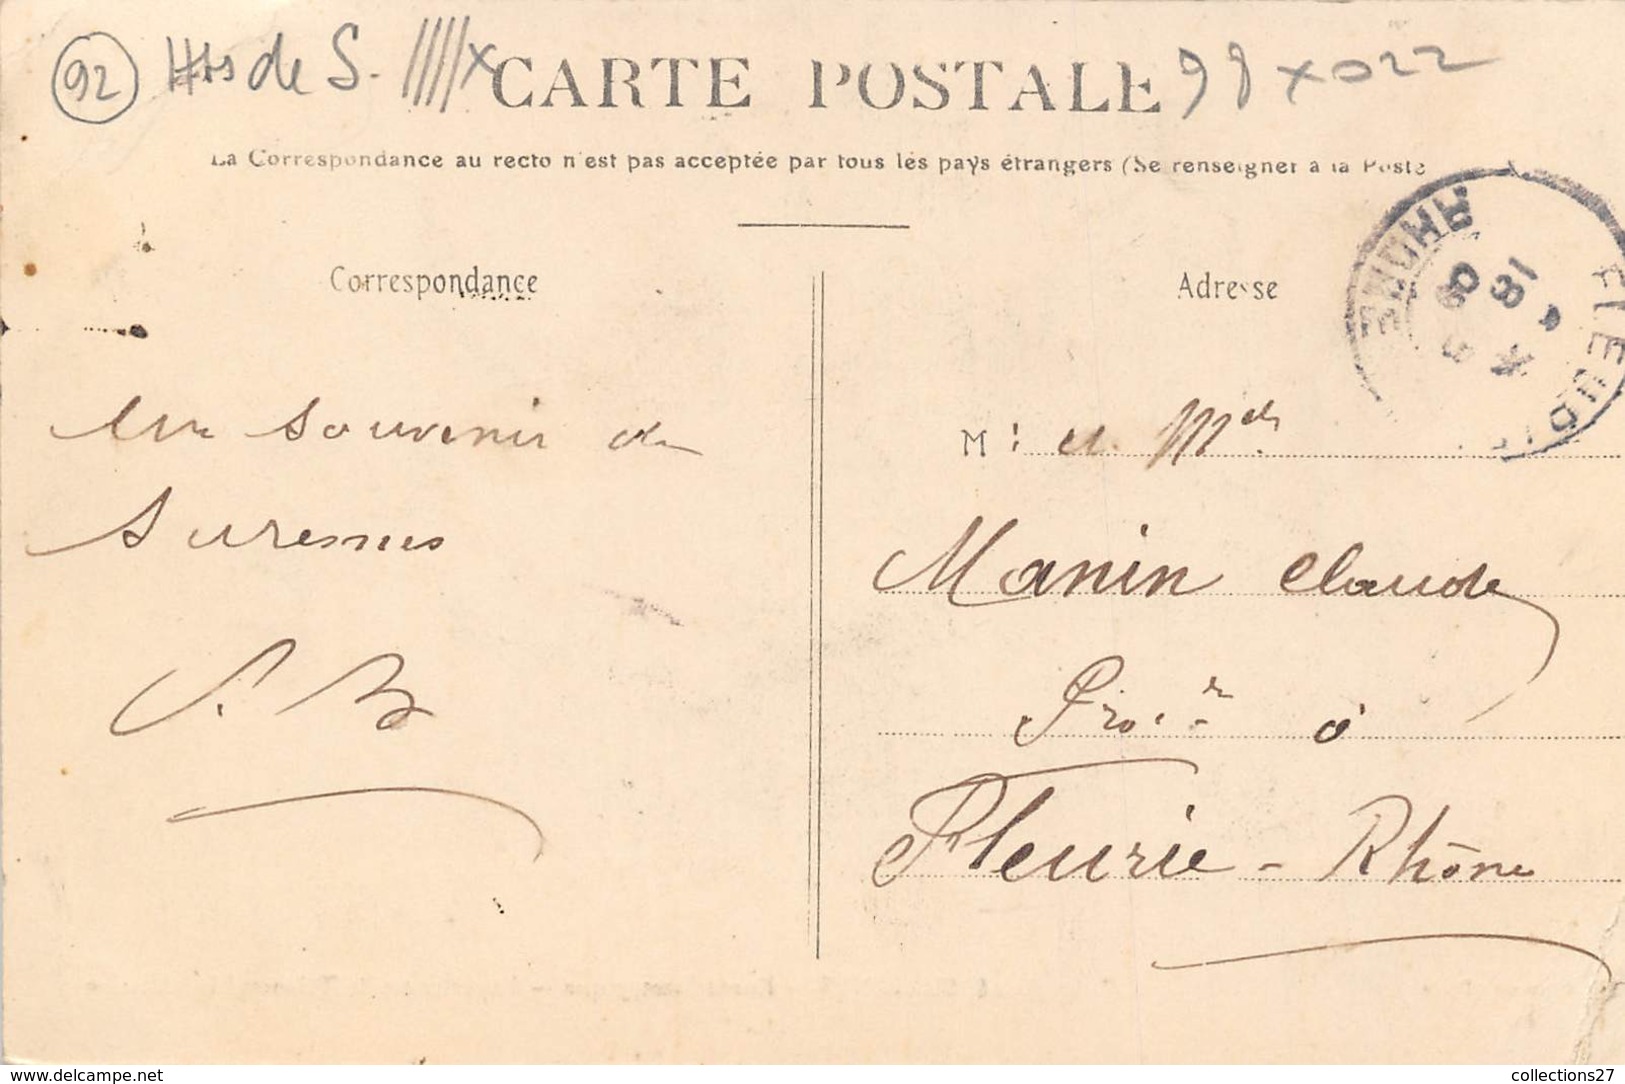 92 Hts de S. 98 x 022
CARTE POSTALE
La Correspondance au recto n'est pas acceptée par tous les pays étrangers (Se renseigner à la Poste
FLEURIE
RHONE
18
Correspondance
Adresse
Un souvenir de
Suresnes
M
Manin Claude
à
Fleurie - Rhône
www.delcampe.net
collections27